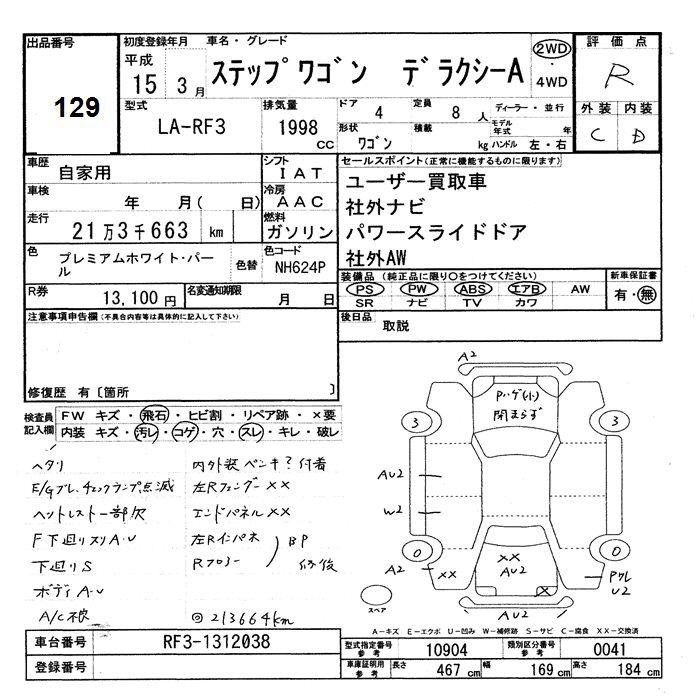 出品番号
129
初度登録年月
平成
15 3 月
車名・グレード
ステップワゴン デラクシーA
2WD
・
4WD
評価点
R
型式
LA-RF3
排気量
1998 cc
ドア 4
定員 8 人
ディーラー・並行
形状 ワゴン
積載 kg
モデル年式 年
ハンドル 左・右
外装 内装
C D
車歴 自家用
シフト IAT
車検 年 月( 日)
冷房 AAC
走行 21万3千663 km
燃料 ガソリン
色 プレミアムホワイト・パール
色替
色コード NH624P
R券 13,100 円
名変通知期限 月 日
セールスポイント(正常に機能するものに限ります)
ユーザー買取車
社外ナビ
パワースライドドア
社外AW
装備品(純正品に限り○をつけてください)
PS PW ABS エアB AW
SR ナビ TV カワ
新車保証書
有・無
後日品 取説
注意事項申告欄(不具合内容等は具体的に記入して下さい)
修復歴 有〔箇所 〕
検査員記入欄
FW キズ・飛石・ヒビ割・リペア跡・×要
内装 キズ・汚レ・コゲ・穴・スレ・キレ・破レ
ヘタリ
E/Gブレ、チェックランプ点滅
ヘットレスト一部欠
F下廻リスリA・U
下廻りS
ボディA・U
A/C不良
内外装ペンキ?付着
左Rフェンダー××
エンドパネル××
左Rインパネ
Rフロアー
BP
修後
◎213664km
A2
Pハゲ(小)
閉まらず
3
3
AU2
W2
0
0
A2
××
××
AU2
×
PワレU2
AU2
スペア
A-キズ E-エクボ U-凹み W-補修跡 S-サビ C-腐食 XX-交換済
車台番号 RF3-1312038
登録番号
型式指定番号 参考 10904
類別区分番号 参考 0041
車庫証明用 参考 長さ 467 cm 幅 169 cm 高さ 184 cm